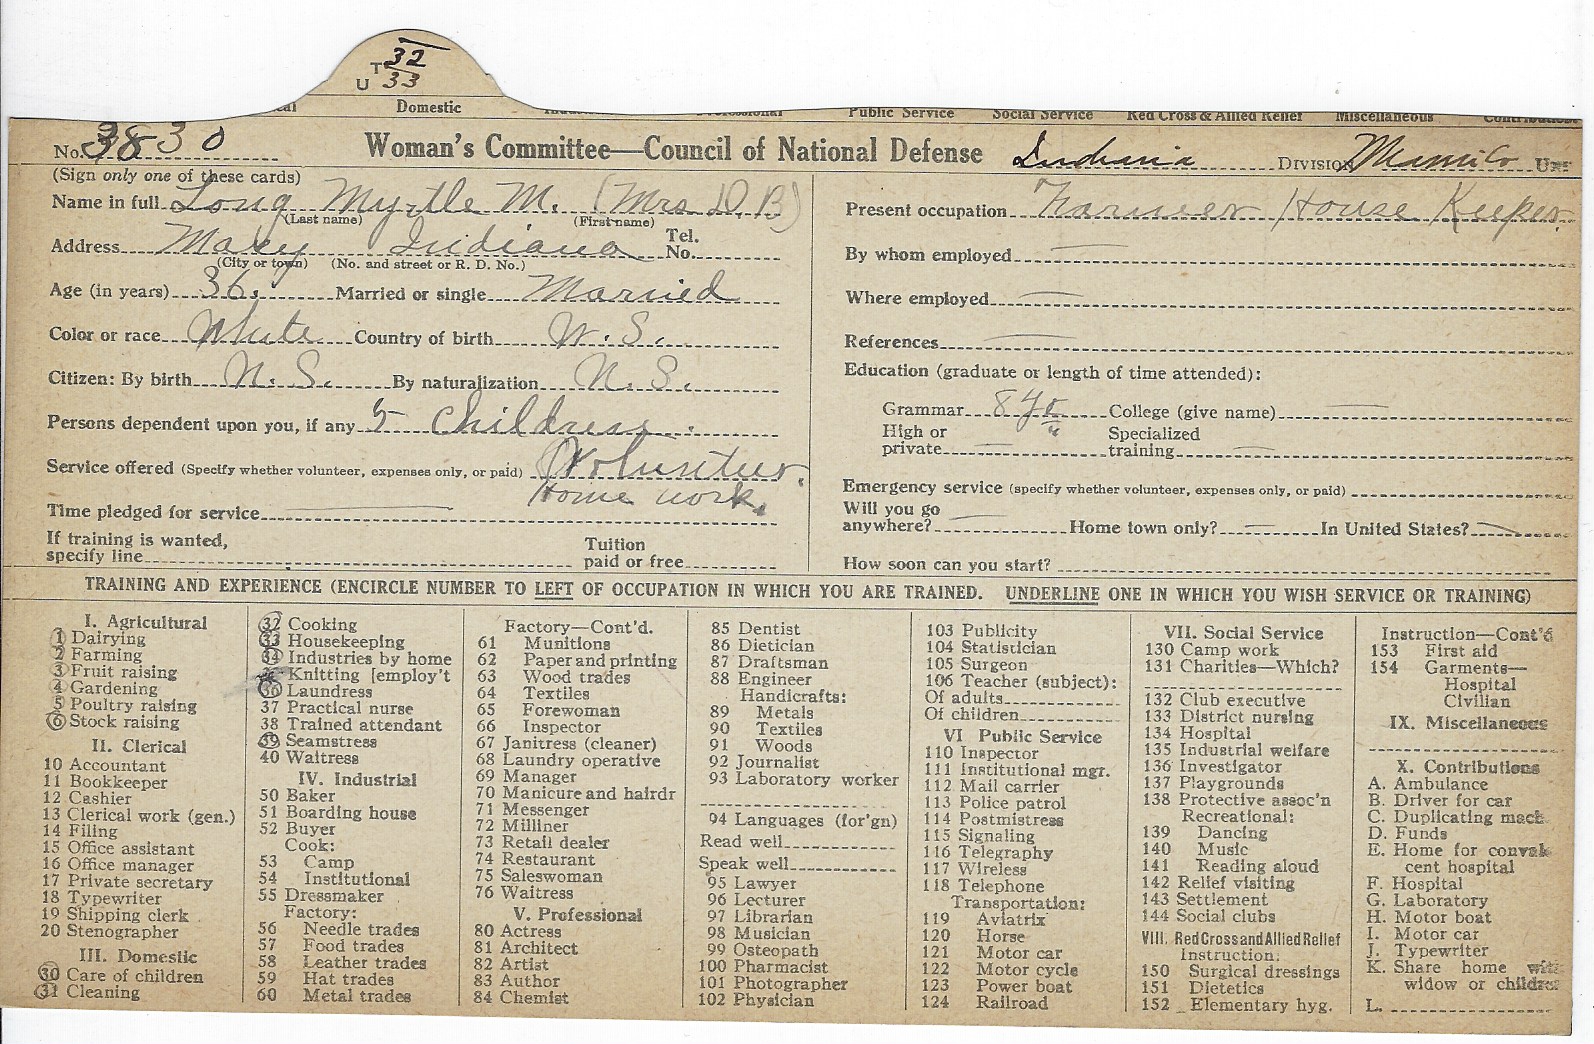 T 32
U 33
Domestic
Public Service Social Service Red Cross & Allied Relief Miscellaneous
No. 3830 Woman's Committee—Council of National Defense Indiana Division Miami Co
(Sign only one of these cards)
Name in full Long Myrtle M. (Mrs D.B)
(Last name) (First name)
Address Maxy Indiana Tel. No.
(City or town) (No. and street or R. D. No.)
Age (in years) 36. Married or single Married
Color or race White Country of birth U.S.
Citizen: By birth U.S. By naturalization U.S.
Persons dependent upon you, if any 5 children.
Service offered (Specify whether volunteer, expenses only, or paid) Volunteer.
Home work.
Time pledged for service
If training is wanted,
specify line Tuition
paid or free
Present occupation Farmer House Keeper.
By whom employed
Where employed
References
Education (graduate or length of time attended):
Grammar 8 College (give name)
High or
private Specialized
training
Emergency service (specify whether volunteer, expenses only, or paid)
Will you go
anywhere? Home town only? In United States?
How soon can you start?
TRAINING AND EXPERIENCE (ENCIRCLE NUMBER TO LEFT OF OCCUPATION IN WHICH YOU ARE TRAINED. UNDERLINE ONE IN WHICH YOU WISH SERVICE OR TRAINING)
I. Agricultural
1 Dairying
2 Farming
3 Fruit raising
4 Gardening
5 Poultry raising
6 Stock raising
II. Clerical
10 Accountant
11 Bookkeeper
12 Cashier
13 Clerical work (gen.)
14 Filing
15 Office assistant
16 Office manager
17 Private secretary
18 Typewriter
19 Shipping clerk
20 Stenographer
III. Domestic
30 Care of children
31 Cleaning
32 Cooking
33 Housekeeping
34 Industries by home
Knitting [employ't
36 Laundress
37 Practical nurse
38 Trained attendant
39 Seamstress
40 Waitress
IV. Industrial
50 Baker
51 Boarding house
52 Buyer
Cook:
53 Camp
54 Institutional
55 Dressmaker
Factory:
56 Needle trades
57 Food trades
58 Leather trades
59 Hat trades
60 Metal trades
Factory—Cont'd.
61 Munitions
62 Paper and printing
63 Wood trades
64 Textiles
65 Forewoman
66 Inspector
67 Janitress (cleaner)
68 Laundry operative
69 Manager
70 Manicure and hairdr
71 Messenger
72 Milliner
73 Retail dealer
74 Restaurant
75 Saleswoman
76 Waitress
V. Professional
80 Actress
81 Architect
82 Artist
83 Author
84 Chemist
85 Dentist
86 Dietician
87 Draftsman
88 Engineer
Handicrafts:
89 Metals
90 Textiles
91 Woods
92 Journalist
93 Laboratory worker
94 Languages (for'gn)
Read well
Speak well
95 Lawyer
96 Lecturer
97 Librarian
98 Musician
99 Osteopath
100 Pharmacist
101 Photographer
102 Physician
103 Publicity
104 Statistician
105 Surgeon
106 Teacher (subject):
Of adults
Of children
VI Public Service
110 Inspector
111 Institutional mgr.
112 Mail carrier
113 Police patrol
114 Postmistress
115 Signaling
116 Telegraphy
117 Wireless
118 Telephone
Transportation:
119 Aviatrix
120 Horse
121 Motor car
122 Motor cycle
123 Power boat
124 Railroad
VII. Social Service
130 Camp work
131 Charities—Which?
132 Club executive
133 District nursing
134 Hospital
135 Industrial welfare
136 Investigator
137 Playgrounds
138 Protective assoc'n
Recreational:
139 Dancing
140 Music
141 Reading aloud
142 Relief visiting
143 Settlement
144 Social clubs
VIII. Red Cross and Allied Relief
Instruction:
150 Surgical dressings
151 Dietetics
152 Elementary hyg.
Instruction—Cont'd
153 First aid
154 Garments—
Hospital
Civilian
IX. Miscellaneous
X. Contributions
A. Ambulance
B. Driver for car
C. Duplicating mach
D. Funds
E. Home for conval
cent hospital
F. Hospital
G. Laboratory
H. Motor boat
I. Motor car
J. Typewriter
K. Share home with
widow or children
L.